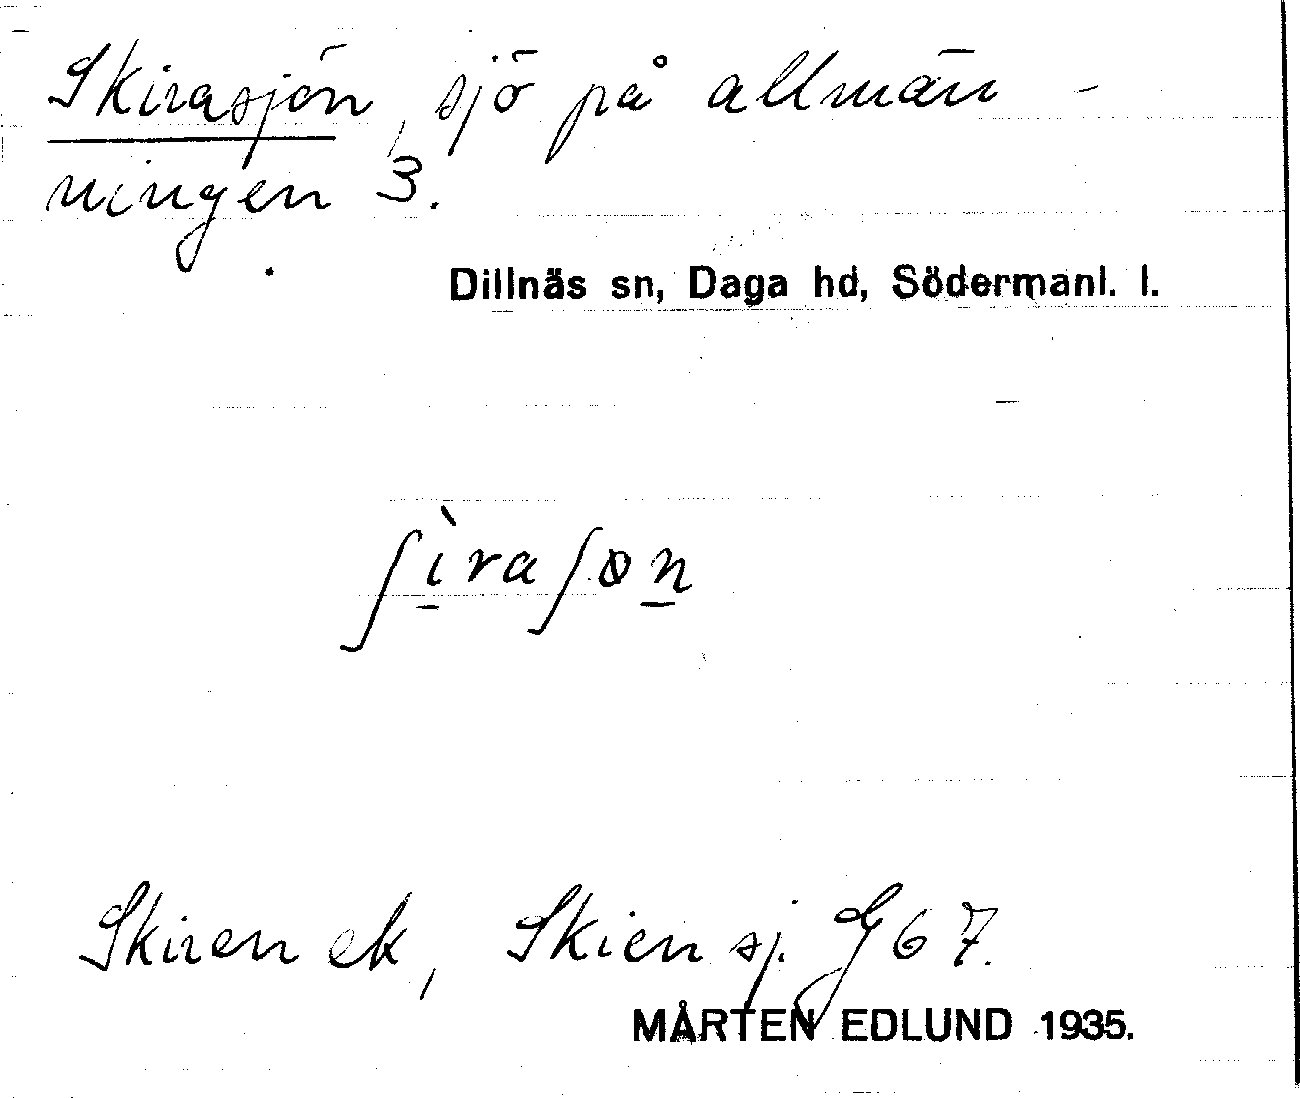 Skirasjön, sjö på allmän-
ningen 3.
Dillnäs sn, Daga hd, Södermanl. l.
ʃìraʃøn
Skiren ek, Skien sj. G 67.
MÅRTEN EDLUND 1935.